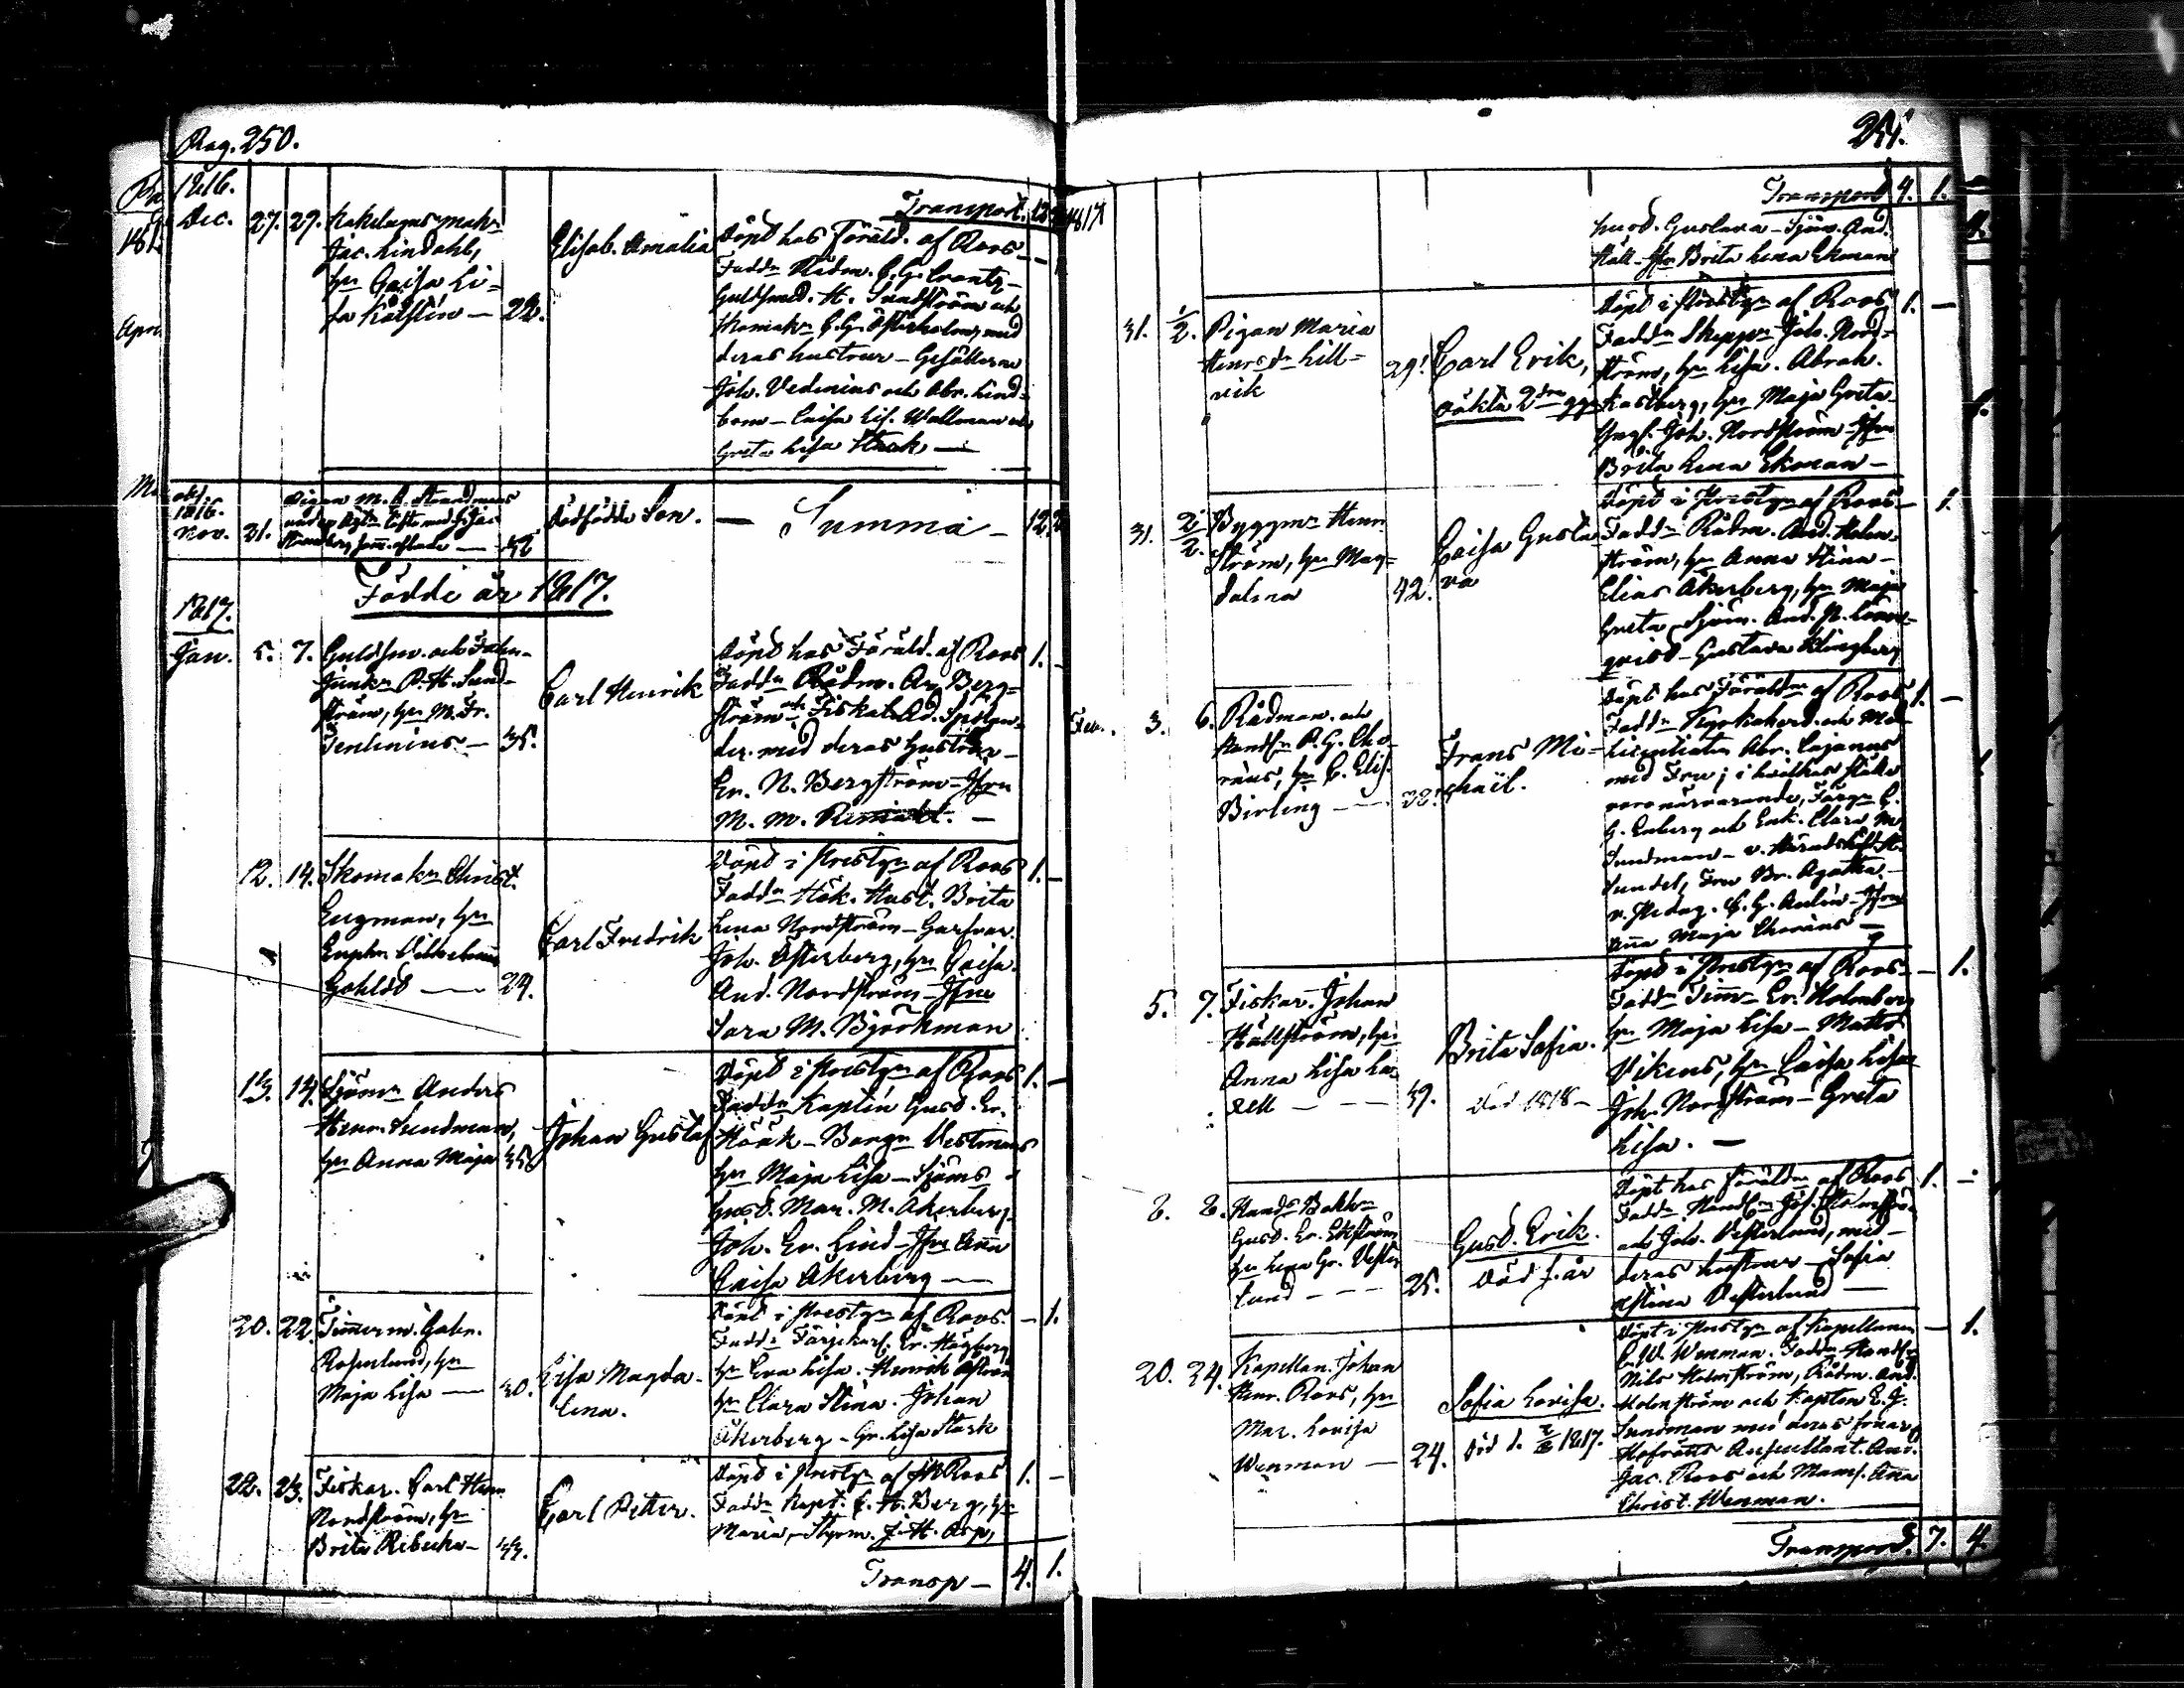 Pag. 250.
1816.
Transport. 12
Dec. 27. 29. Kakelugnsmakr
Jac. Lindahl,
hu Caisa Li-
sa — 22.
Elisab. Amalia
Döpt hos Föräld. af Roos
Faddr Rådm. C. G. Crantz
Guldsmed. H. Sundström och
Skomakr C. G. Österholm, med
deras hustrur — Gesällerne
Joh. Vedenius och Abr. Lind-
bom — Caisa Lis. Wallman och
Greta Lisa Stark —
1816.
Nov. 31.
Pigan M. C.
Dödfödde Son. — Summa — 12.
Födde år 1817.
1817.
Jan. 5. 7. Guldsm. och Fahn-
junkr P. H. Sund-
ström, hu M. Fr.
— 35.
Carl Henrik
Döpt hos Föräld. af Roos 1. -
Faddr Rådm. Berg-
ström och Fiskal
med deras Hustrur —
Er. N. Bergström — Jfru
M. M.
12. 14. Skomakr Christ.
Engman, hu
Gohldt — 29.
Carl Fredrik
Döpt i Prestgn af Roos 1. -
Faddr Hök. Hust. Brita
Lena Nordström — Garfvar.
Joh. Österberg, hu Caisa.
And. Nordström — Jfru
Sara M. Björkman
13. 14. Sjöm Anders
Henr. Sundman,
hu Anna Maja 35
Johan Gustaf
Döpt i Prestgn af Roos 1. -
Faddr Kaptin Gust. Er.
Höök — Borgn Vestmans
hu Maja Lisa — Sjöms
hust. Mar. M. Åkerberg
Joh. Er. Lind — Jfru Anna
Caisa Åkerberg —
20. 22. Timerm. Gabr.
hu
Maja Lisa — 30.
Lisa Magda-
lena.
Döpt i Prestgn af Roos. - 1.
Faddr Färjekarl. Er. Hägberg
hu Eva Lisa. Henrik
hu Clara Stina. Johan
Åkerberg — Gr. Lisa Stark
22. 23. Fiskar. Carl Henr.
Nordström, hu
Brita Rebecka — 33.
Carl Petter.
Döpt i Prestgn af Roos 1. -
Faddr Kapt. C. H. Berg, hu
Maria, — Styrm. J. H. Asp,
Transp — 4. 1.
251.
1817
Transport 4. 1.
hust. Gustava — Sjöm. And.
Häll — Jfru Brita Lena Ekman
31. 1/2. Pigan Maria
Henrsdr Lill-
vik 29.
Carl Erik,
oäkta 2dra ggn
Döpt i Prestgn af Roos 1. —
Faddr Skeppr Joh. Nord-
ström, hu Lisa. Abrah.
Kastberg, hu Maja Greta
Joh. Nordström — Jfru
Brita Lena Ekman —
31. 2/2. Byggmr Henr.
ström, hu Mag-
dalena 42.
Caisa Gusta-
va
Döpt i Prestgn af Roos — 1.
Faddr Rådm. And. Holm-
ström, hu Anna Stina —
Elias Åkerberg, hu Maja
Greta — Sjöm. And. P. Löf-
qvist — Gustava Klingberg
Febr. 3. 6. Rådman. och
Handln P. G. Cho-
ræus, hu C. Elis.
Birling —
Frans Mi-
chaël.
Döpt hos Föräldrn af Roos 1. —
Faddr Kyrkoherd. och Med.
Licentiaten Abr. Cajanus
med Fru; i hvilkas ställe
voro närvarande, Färgn C.
G. Enberg och Enk. Clara M.
Sundman — v. Häradshöfd. H.
Lundel, Fru Br. Agatha. —
v. Pedag. C. G. Aulin — Jfru
Anna Maja Choræus —
5. 7. Fiskar. Johan
Hällström, hu
Anna Lisa
— — 39.
Brita Sofia.
Död 1818 —
Döpt i Prestgn af Roos — — 1.
Faddr Timr Er. Holmberg
hu Maja Lisa — Matts
Vikens, hu Caisa Lisa
Joh. Nordström — Greta
Lisa. —
8. 8. Handls Bokhr
Gust. Er. Ekström
hu Lena Gr. Vester
lund — — — 25.
Gust. Erik.
Död s. år
Döpt hos Föräldrn af Roos 1. —
Faddr Handln Joh. Holmström
och Joh. Vesterlund, med
deras hustrur — Sofia
Stina Vesterlund —
20. 24. Kapellan. Johan
Henr. Roos, hu
Mar. Lovisa
Wenman — 24.
Sofia Lovisa.
Död d. 1817.
Döpt i Prestgn af Kapellanen — 1.
C. W. Wenman. Faddr Handln
Nils Holmström, Rådm. And.
Holmström och Kapten E. J.
Sundman med deras fruar,
Hofrätts Auscultant. And.
Jac. Roos och Mams. Anna
Christ. Wenman.
Transport. 7. 4.